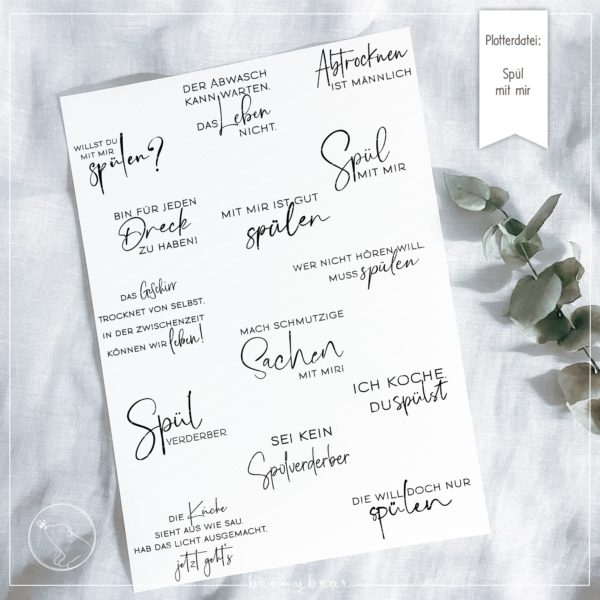 Plotterdatei:
Spül
mit mir
DER ABWASCH
KANN WARTEN.
DAS Leben
NICHT.
Abtrocknen
IST MÄNNLICH
WILLST DU
MIT MIR
spülen?
Spül
MIT MIR
BIN FÜR JEDEN
Dreck
ZU HABEN!
MIT MIR IST GUT
spülen
WER NICHT HÖREN WILL
MUSS spülen
DAS Geschirr
TROCKNET VON SELBST.
IN DER ZWISCHENZEIT
KÖNNEN WIR leben!
MACH SCHMUTZIGE
Sachen
MIT MIR!
ICH KOCHE.
DU spülst
Spül
VERDERBER
SEI KEIN
Spülverderber
DIE WILL DOCH NUR
spülen
DIE Küche
SIEHT AUS WIE SAU.
HAB DAS LICHT AUSGEMACHT,
jetzt geht's
beemybear